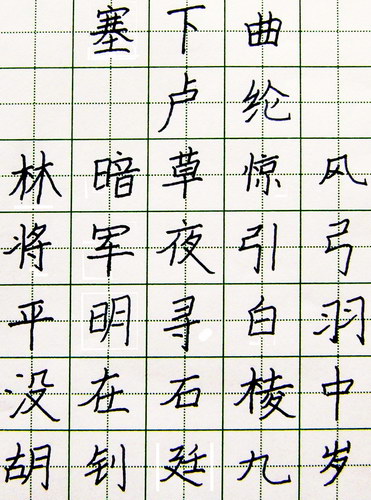 塞下曲
卢纶
林暗草惊风
将军夜引弓
平明寻白羽
没在石棱中
胡钊廷九岁